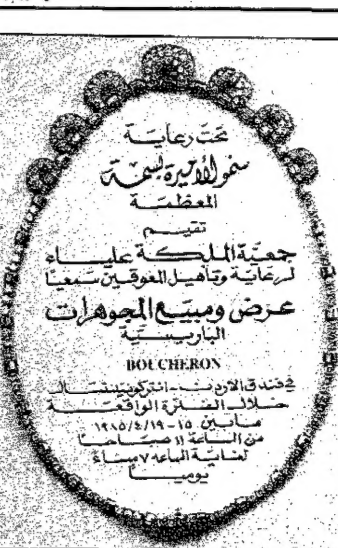 تحت رعاية
سمو الأميرة بسمة
المعظمة
تقيم
جمعية الملكة علياء
لرعاية وتأهيل المعوقين سمعيا
عرض ومبيع المجوهرات
الباريسية
BOUCHERON
في فندق الاردن - انتركونتيننتال
خلال الفترة الواقعة
مابين ١٥ - ١٩/٤/١٩٨٥
من الساعة ١١ صباحا
لغاية الساعة ٧ مساء
يوميا